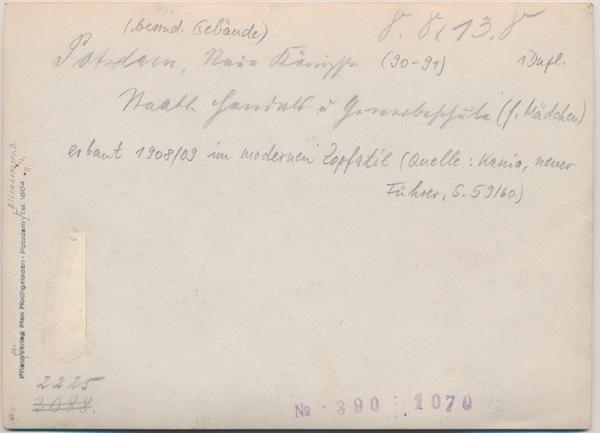 (besond. Gebände)
8. 8 x 13.8
Potsdam, Neue Königstr. (90-91) 1 Dupl.
Staatl. Handels u Gewerbeschule (f. Mädchen)
erbaut 1908/09 im modernen Zopfstil (Quelle: Kania, neuer
Führer, S. 59/60)
Photo-Verlag Max Hochgeladen - Potsdam, Tel. 1604
2225
3088.
№ 390 1070